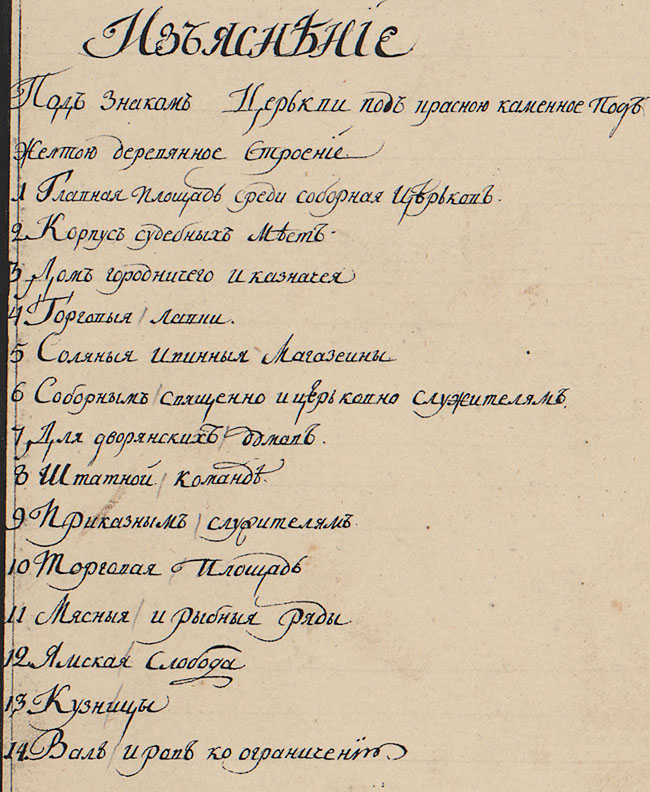 Изъяснѣнiе
Подъ Знакомъ Церькви подъ красною каменное Подъ
Желтою деревянное Строенiе
1 Главная площадь среди соборная Цѣрьковъ.
2 Корпусъ судебныхъ Мѣстъ
3 Домъ городничего и казначея
4 Торговыя лавки.
5 Соляныя и винныя Магазеины
6 Соборнымъ священно и церьковно служителямъ.
7 Для дворянскихъ домовъ.
8 Штатной командѣ
9 Приказнымъ служителямъ
10 Торговая Площадь
11 Мясныя и рыбныя Ряды
12 Ямская Слобода
13 Кузницы
14 Валъ и ровъ ко ограниченiю